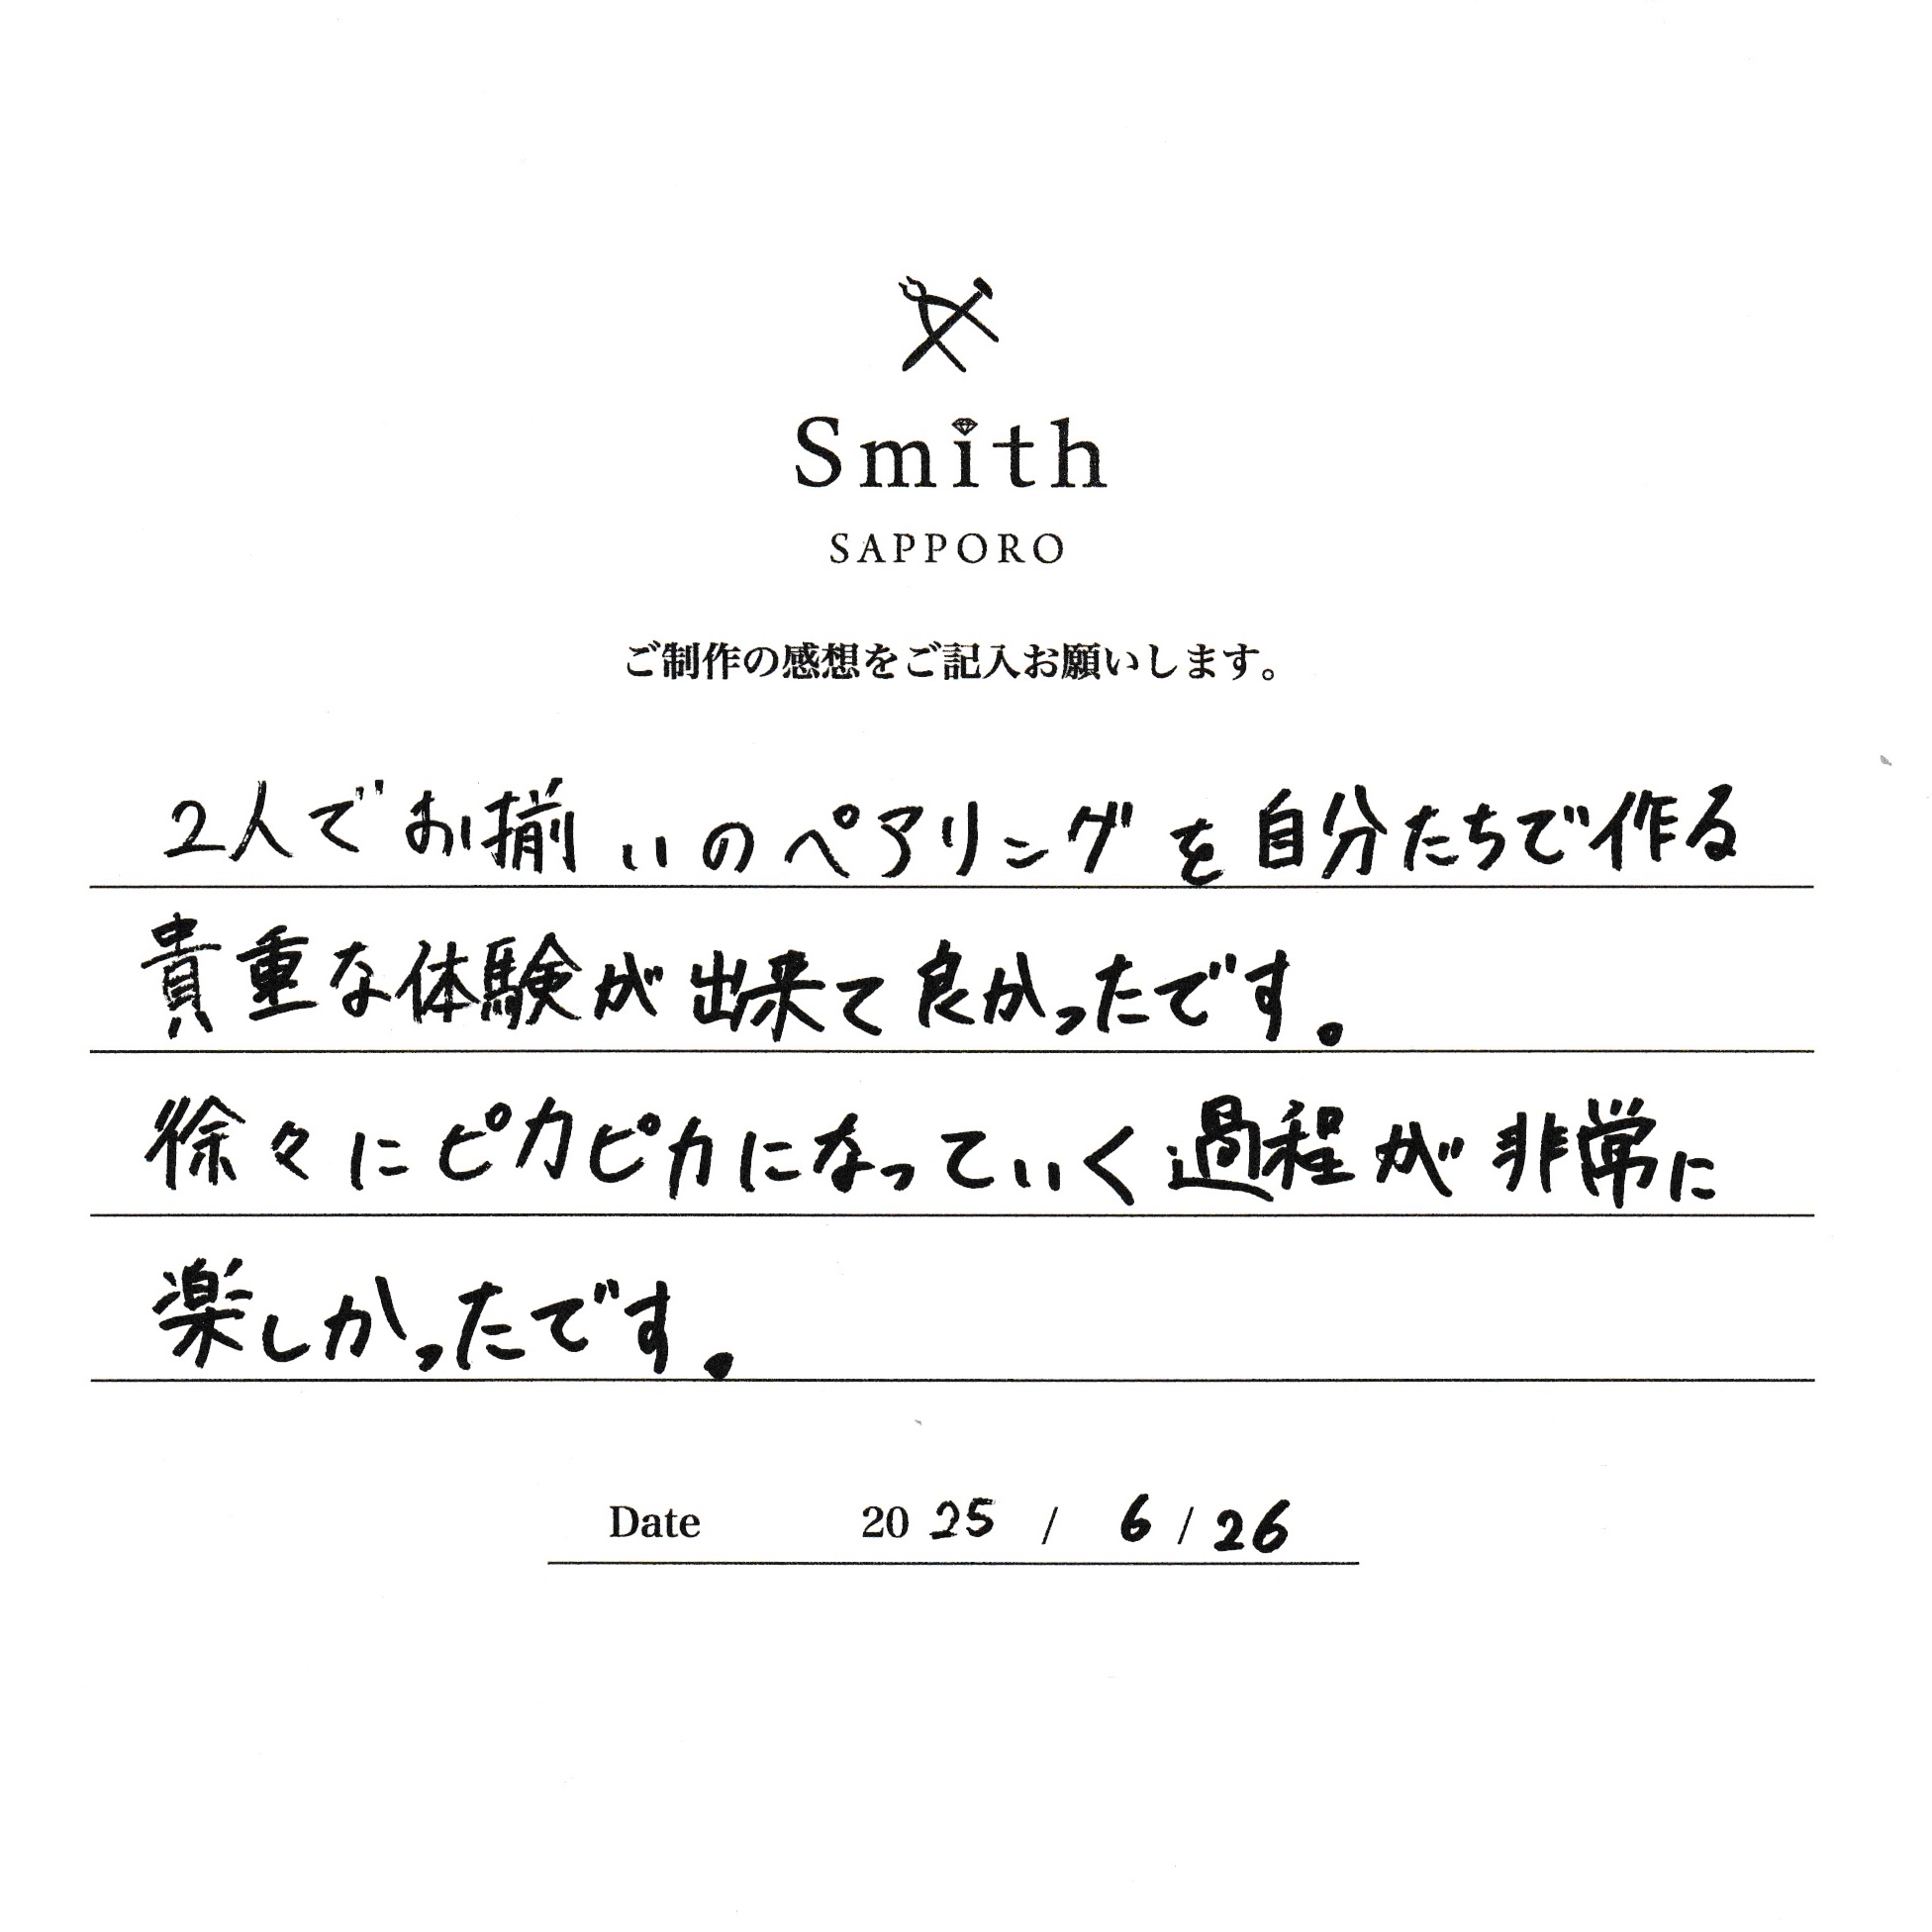 Smith
SAPPORO
ご制作の感想をご記入お願いします。
2人でお揃いのペアリングを自分たちで作る
貴重な体験が出来て良かったです。
徐々にピカピカになっていく過程が非常に
楽しかったです。
Date 2025 / 6 / 26